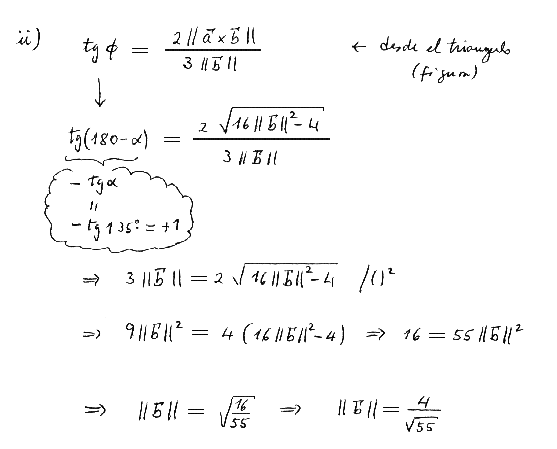 ii) tg ϕ = 2 ||a⃗ × b⃗|| / 3 ||b⃗|| ← desde el triangulo
(figura)
↓
tg(180-α) = 2 √(16 ||b⃗||² - 4) / 3 ||b⃗||
- tg α
"
- tg 135° = +1
⇒ 3 ||b⃗|| = 2 √(16 ||b⃗||² - 4) /()²
⇒ 9 ||b⃗||² = 4 (16 ||b⃗||² - 4) ⇒ 16 = 55 ||b⃗||²
⇒ ||b⃗|| = √(16/55) ⇒ ||b⃗|| = 4/√55